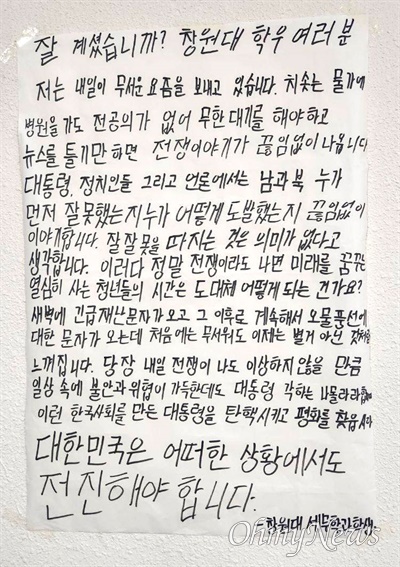 잘 계셨습니까? 창원대 학우 여러분
저는 내일이 무서운 요즘을 보내고 있습니다. 치솟는 물가에
병원을 가도 전공의가 없어 무한대기를 해야하고
뉴스를 틀기만 하면 전쟁이야기가 끊임없이 나옵니다
대통령, 정치인들 그리고 언론에서는 남과 북 누가
먼저 잘못했는지 누가 어떻게 도발했는지 끊임없이
이야기합니다. 잘잘못을 따지는 것은 의미가 없다고
생각합니다. 이러다 정말 전쟁이라도 나면 미래를 꿈꾸는
열심히 사는 청년들의 시간은 도대체 어떻게 되는 건가요?
새벽에 긴급재난문자가 오고 그 이후로 계속해서 오물풍선에
대한 문자가 오는데 처음에는 무서워도 이제는 별거 아닌 것처럼
느껴집니다. 당장 내일 전쟁이 나도 이상하지 않을 만큼
일상 속에 불안과 위협이 가득한데도 대통령 각하는 나몰라라
이런 한국사회를 만든 대통령을 탄핵시키고 평화를 찾읍시다
대한민국은 어떠한 상황에서도
전진해야 합니다.
창원대 세무학과 학생
OhmyNews